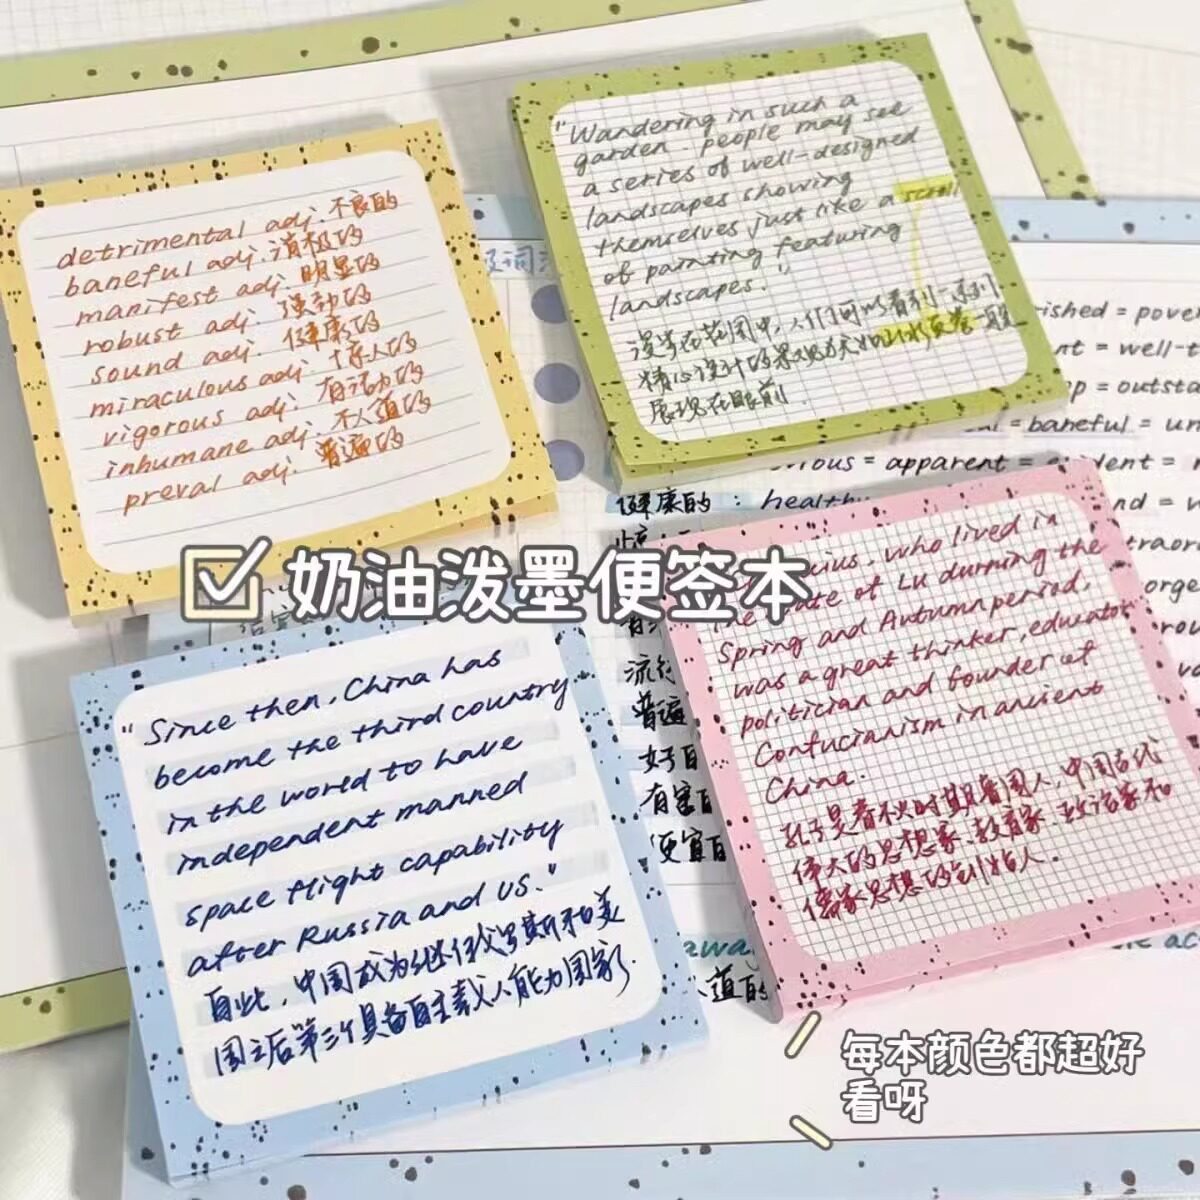 detrimental adj. 不良的
baneful adj. 消极的
manifest adj. 明显的
robust adj. 强劲的
sound adj. 健康的
miraculous adj. 惊人的
vigorous adj. 有活力的
inhumane adj. 不人道的
preval adj. 普遍的
"Wandering in such a
garden. people may see
a series of well-designed
landscapes showing
themselves just like a scroll
of painting featuring
landscapes."
漫步在花园中,人们可以看到一系列
精心设计的景观犹如山水画卷一般
展现在眼前.
ished = pover
nt = well-t
p = outsta
= baneful = un
vious = apparent = evident =
健康的 : healthy
nd = v
traor
流行
普遍
好的
有害的
便宜的
人道的
☑ 奶油泼墨便签本
"Since then, China has
become the third country
in the world to have
independent manned
space flight capability
after Russia and US."
自此,中国成为继俄罗斯和美
国之后第三个具备自主载人能力国家.
cius, who lived in
the state of Lu durning the
Spring and Autumn period,
was a great thinker, educator
politician and founder of
Confucianism in ancient
China.
孔子是春秋时期鲁国人,中国古代
伟大的思想家、教育家、政治家和
儒家思想的创始人.
每本颜色都超好
看呀